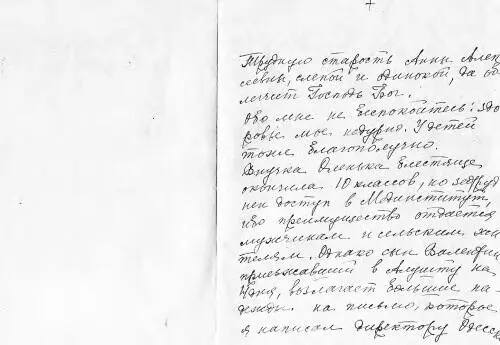 Трудную старость Анны Алек
сеевны, слепой и одинокой, да об
легчит Господь Бог.
Обо мне не беспокойтесь: здо
ровье мое недурно. У детей
тоже благополучно.
Внучка Оленька блестяще
окончила 10 классов, но затруд
нен доступ в Мединститут,
ибо преимущество отдается
мужчинам и сельским жи
телям. Однако сын Валентин
приезжавший в Алушту на
дня, возлагает большие на-
дежды на письмо, которое
я написал директору Одесск